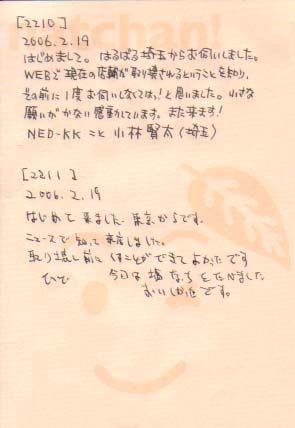 tchan!
[2210]
2006.2.19
はじめまして。はるばる埼玉からお伺いしました。
WEBで現在の店舗が取り壊されるということを知り、
その前に1度お伺いしなくては!と思いました。小さな
願いがかない感動しています。また来ます!
NED-KKこと 小林賢太(埼玉)
[2211]
2006.2.19
はじめて来ました。東京からです。
ニュースで知って来店しました。
取り壊し前に くることができてよかったです
今日は 塩 なっち をたべました。
おいしかったです。